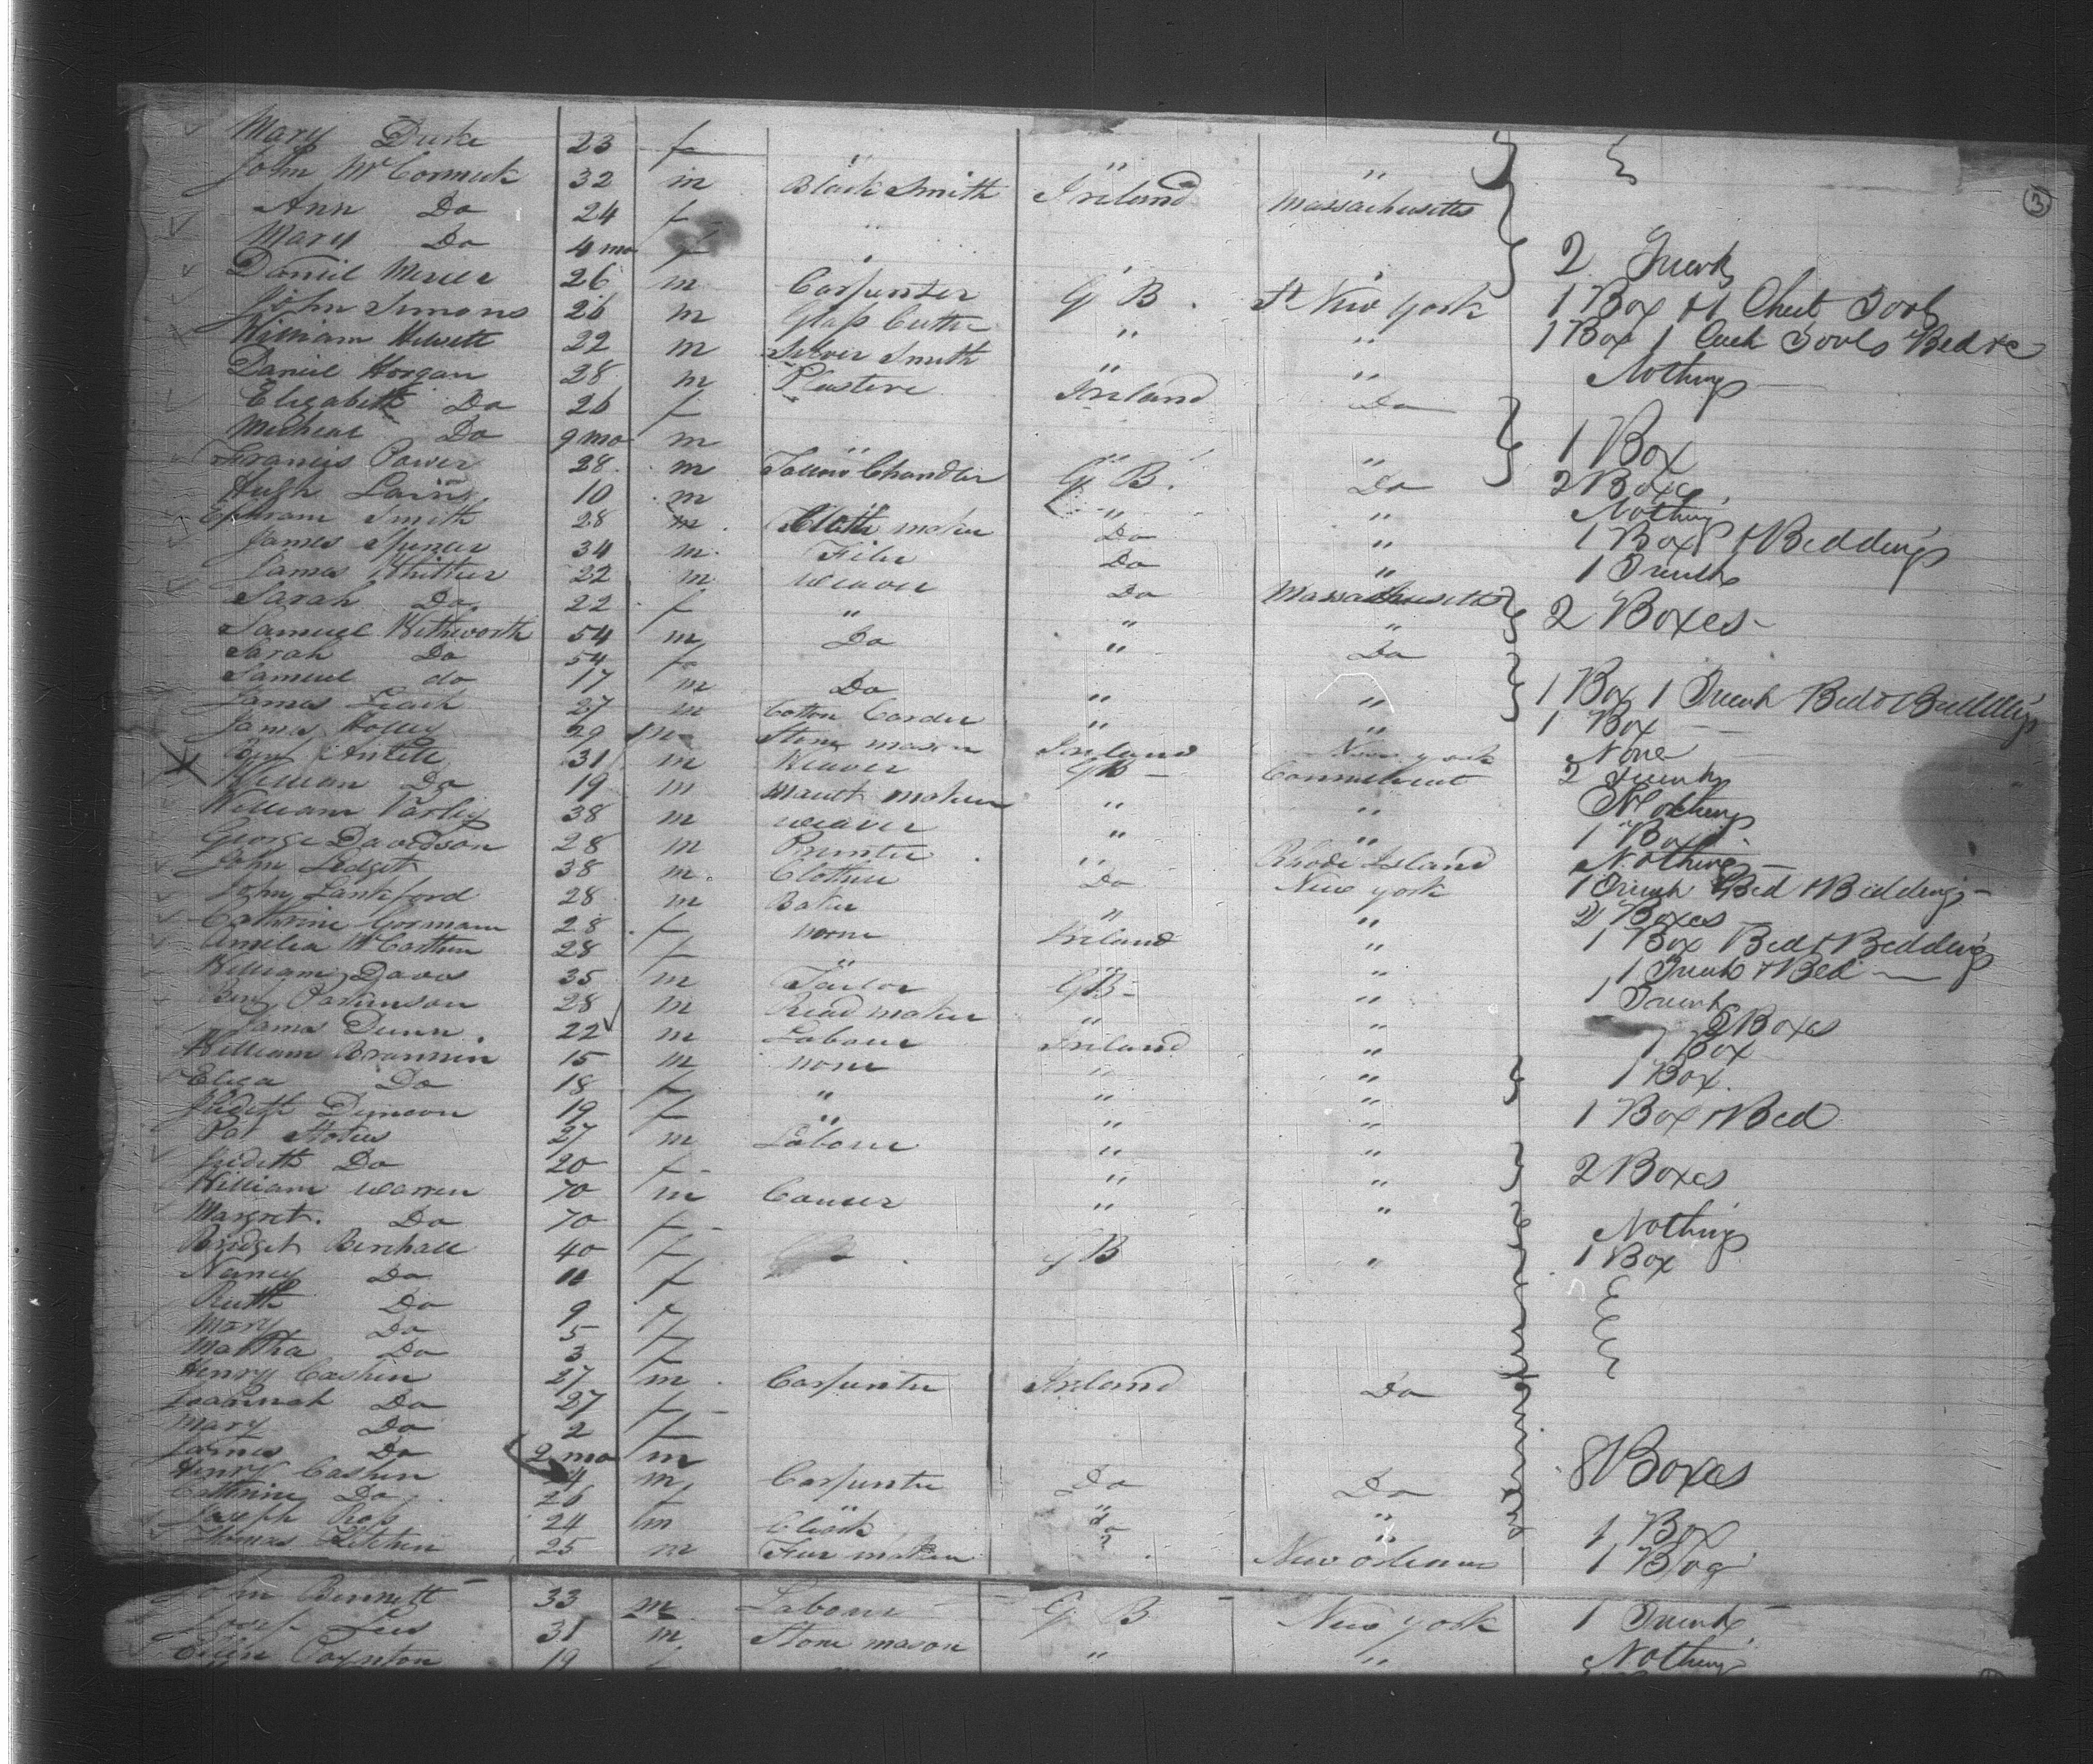 Mary Burke 23 f " " "
John McCormick 32 m Black Smith Ireland Massachusetts
Ann Do 24 f "
Mary Do 4 mo f " " " 2 Trunks
Daniel Mercer 26 m Carpenter G B. St New York 1 Box & 1 Chest Tools
John Simons 26 m Glass Cutter " " 1 Box 1 Tools Bed &c
William Hewett 22 m Silver Smith " " Nothing
Daniel Horgan 28 m Plasterer Ireland Do
Elizabeth Do 26 f
Micheal Do 9 mo m " " " 1 Box
Francis Power 28 m Tallow Chandler G B. Do 2 Boxes
Hugh 10 m " " " Nothing
Ephram Smith 28 m. Cloth maker Do " 1 Box & Beddings
James Spencer 34 m. Filer Do " 1 Trunk
James Whitther 22 m Weaver Do Massachusetts
Sarah Do 22 f " " " 2 Boxes
Samuel Hithworth 54 m Do " Do
Sarah Do 54 f
Samuel do 17 m Do " " 1 Box 1 Trunk Bed & Bedding
James Leach 27 m Cotton Carder " " 1 Box
James Holley 29 m Stone mason Ireland New york None
Benj 31 m Weaver GB Connecticut 2 Trunks
William Do 19 m maker " " Nothing
William Varley 38 m weaver " " 1 Box
George Davidson 28 m Printer " Rhode Island Nothing
John Ledget 38 m. Clothier Do New york 1 Trunk Bed & Beddings
John Lankford 28 m Baker " " 2 Boxes
Cathrine Gormann 28 f none Ireland " 1 Box Bed & Bedding
Amelia McCarthur 28 f " " " 1 Trunk & Bed
William Davos 35 m Tailor GB " 1 Trunk
Benj Parkinson 28 m Read maker " " 2 Boxes
James Dunn 22 m Labour Ireland " 1 Box
William Brannin 15 m none " "
Eliza Do 18 f " " " 1 Box.
Judith Duncan 19 f " " " 1 Box & Bed
Pat Stokes 27 m Labour " "
Judith Do 20 f " " 2 Boxes
William Warren 70 m " "
Margret. Do 70 f Nothing
Bridget Birchall 40 f G B " 1 Box
Nancy Do 11 f
Ruth Do 9 f
Mary Do 5 f
Martha Do 3 f
Henry Cashin 27 m Carpenter Ireland Do
Joannah Do 27 f
Mary Do 2 f
James Do 2 mo m 8 Boxes
Henry Cashin 24 m Carpenter Do Do
Cathrine Do 26 " " "
Joseph Ross 24 m Clerk do " 1 Box
Thomas Kitchin 25 m Fur maker " New orleans 1 Box
John Bennett 33 m Labour G B New york 1 Trunk
Josep Lees 31 m Stone mason " " Nothing
Ellen Poynton 19 f
3